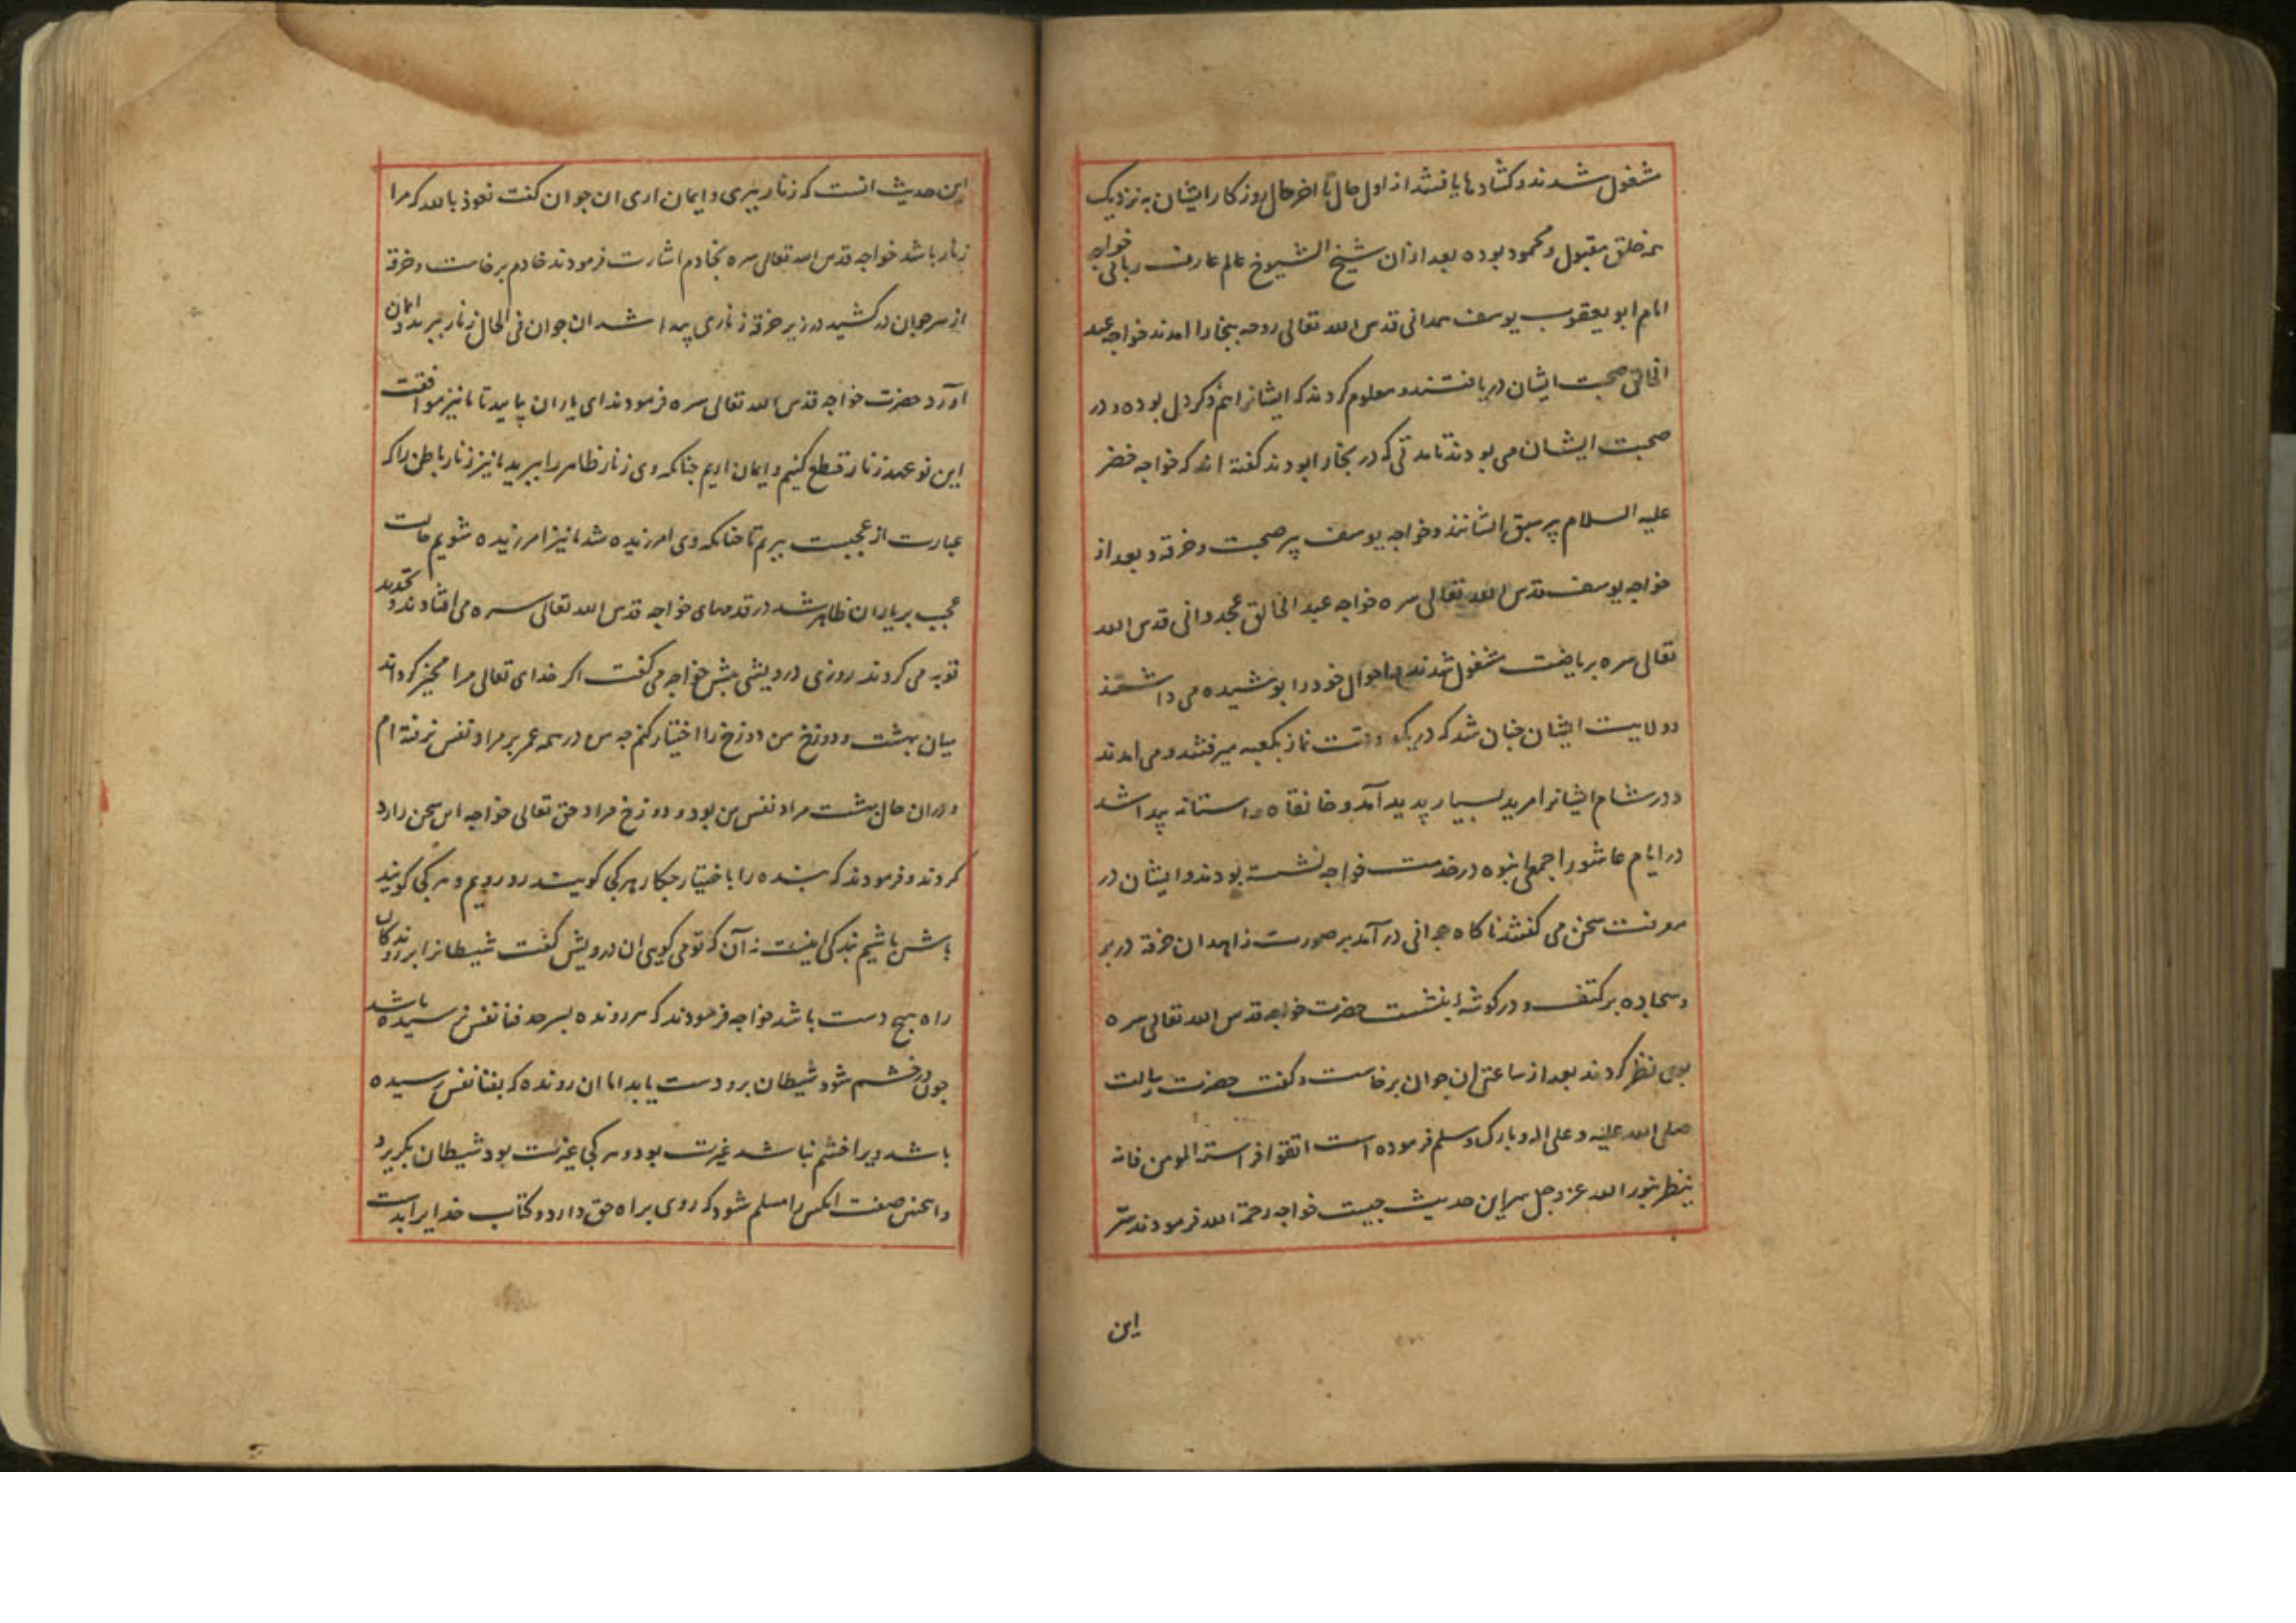 مشغول شدند و کشادها یافتند از اول حال تا اخر حال روزکار ایشان به نزدیک
همه خلق مقبول و محمود بوده بعد ازان شیخ الشیوخ عالم عارف ربانی خواجه
امام ابو یعقوب یوسف همدانی قدس الله تعالی روحه ببخارا امدند خواجه عبد
الخالق صحبت ایشان دریافتند و معلوم کردند که ایشانرا هم ذکر دل بوده و در
صحبت ایشان می بودند تا مدتی که در بخارا بودند کفته اند که خواجه خضر
علیه السلام پیر سبق ایشانند و خواجه یوسف پیر صحبت و خرقه و بعد از
خواجه یوسف قدس الله تعالی سره خواجه عبد الخالق غجدوانی قدس الله
تعالی سره بریاضت مشغول شدند و احوال خود را پوشیده می داشتند
و ولایت ایشان چنان شد که در یک وقت نماز بکعبه میرفتند و می امدند
و در شام ایشانرا مرید بسیار پدید آمد و خانقاه و استانه پیدا شد
در ایام عاشورا جمعی انبوه در خدمت خواجه نشسته بودند و ایشان در
معرفت سخن می کفتند ناکاه جوانی در آمد بر صورت زاهدان خرقه در بر
و سجاده بر کتف و در کوشهٔ بنشست حضرت خواجه قدس الله تعالی سره
بوی نظر کردند بعد از ساعتی ان جوان برخاست و کفت حضرت رسالت
صلی الله علیه و علی اله و بارک و سلم فرموده است اتقوا فراسة المومن فانه
ینظر بنور الله عز و جل سر این حدیث چیست خواجه رحمة الله فرمودند سر
این
این حدیث انست که زنار ببری و ایمان اری ان جوان کفت نعوذ بالله که مرا
زنار باشد خواجه قدس الله تعالی سره بخادم اشارت فرمودند خادم برخاست و خرقه
از سر جوان در کشید در زیر خرقه زناری پیدا شد ان جوان فی الحال زنار ببرید و ایمان
آورد حضرت خواجه قدس الله تعالی سره فرمودند ای یاران بیایید تا ما نیز موافقت
این نو عهد زنار قطع کنیم و ایمان اریم چنانکه وی زنار ظاهر را ببرید ما نیز زنار باطن را که
عبارت از عجبست ببریم تا چنانکه وی امرزیده شد ما نیز امرزیده شویم حالت
عجب بر یاران ظاهر شد در قدمهای خواجه قدس الله تعالی سره می افتادند و تجدید
توبه می کردند روزی درویشی پیش خواجه می کفت اکر خدای تعالی مرا مخیر کرداند
میان بهشت و دوزخ من دوزخ را اختیار کنم چه من در همه عمر بر مراد نفس نرفته ام
و دران حال بهشت مراد نفس من بود و دوزخ مراد حق تعالی خواجه این سخن را رد
کردند و فرمودند که بنده را باختیار چکار هر کجی کویند رو رویم و هر کجی کویند
باش باشیم بندکی اینست نه آن که تو می کویی ان درویش کفت شیطانرا بر روندکان
راه هیچ دست باشد خواجه فرمودند که هر رونده بسر حد فنا نفس نرسیده باشد
چون در خشم شود شیطان برو دست یابد اما ان رونده که بفنا نفس رسیده
باشد ویرا خشم نباشد غیرت بود و هر کجی غیرت بود شیطان بکریزد
و اینچنین صفت انکس را مسلم شود که روی براه حق دارد و کتاب خدایرا بدست